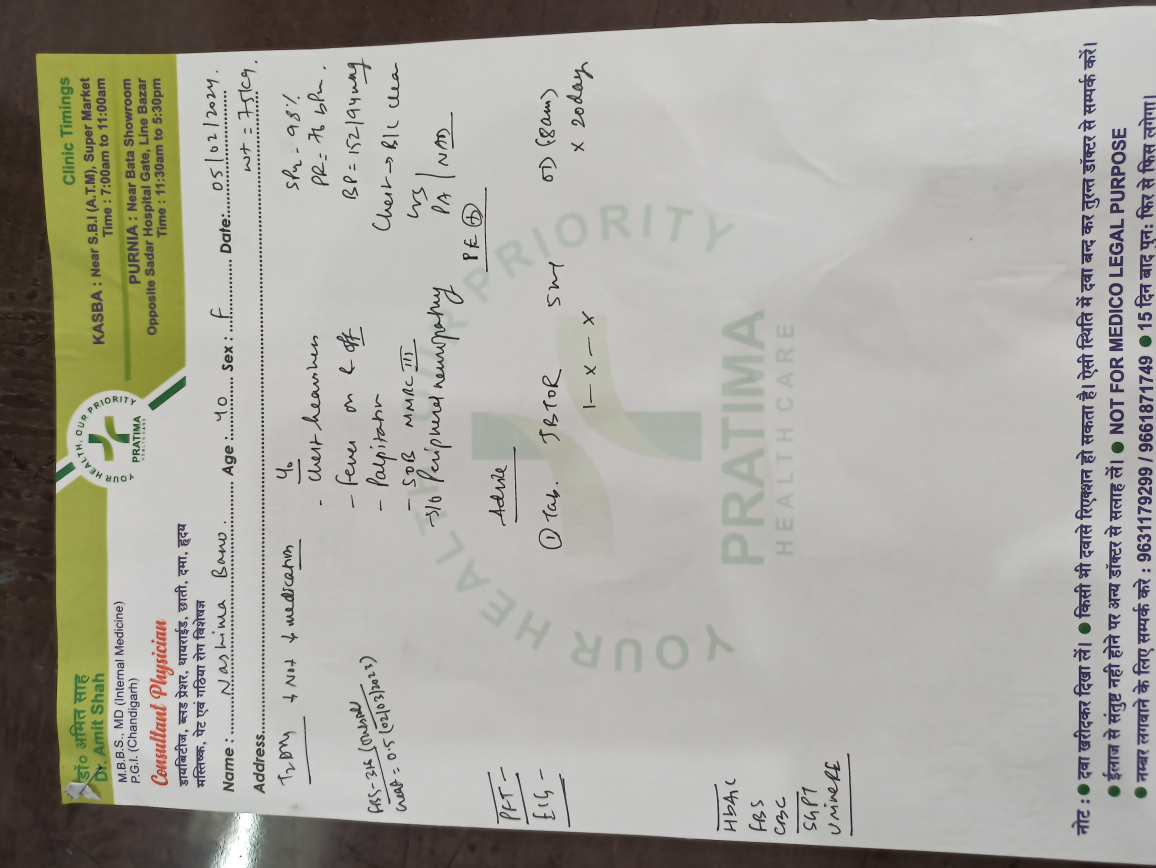 डॉ० अमित साह
Dr. Amit Shah
M.B.B.S., MD (Internal Medicine)
P.G.I. (Chandigarh)
Consultant Physician
डायबिटीज, ब्लड प्रेशर, थायराईड, छाती, दमा, हृदय
मस्तिष्क, पेट एवं गठिया रोग विशेषज्ञ
YOUR HEALTH, OUR PRIORITY
PRATIMA
HEALTHCARE
Clinic Timings
KASBA : Near S.B.I (A.T.M), Super Market
Time : 7:00am to 11:00am
PURNIA : Near Bata Showroom
Opposite Sadar Hospital Gate, Line Bazar
Time : 11:30am to 5:30pm
Name : Nashima Bano. Age : 40 Sex : F Date: 05/02/2024.
Address wt = 75kg.
T2DM Not medication
FBS-316
Creat = 0.5 (02/03/2023)
PFT -
ECG -
HbA1c
FBS
CBC
SGPT
Urine RE
c/o
- chest heaviness
- Fever on & off
- Palpitation
- SOB MMRC III
Peripheral neuropathy
SPO2 = 98%
PR = 76 bpm.
BP = 152/94 mmHg
Chest → B/L clear
CVS
PA | NAD
PE ⊕
Advice
① Tab. 5mg OD (8am)
1 – x – x x 20days
YOUR HEALTH, OUR PRIORITY
PRATIMA
HEALTHCARE
नोट : ● दवा खरीदकर दिखा लें। ● किसी भी दवासे रिएक्शन हो सकता है। ऐसी स्थिति में दवा बन्द कर तुरन्त डॉक्टर से सम्पर्क करें।
● ईलाज से संतुष्ट नही होने पर अन्य डॉक्टर से सलाह लें। ● NOT FOR MEDICO LEGAL PURPOSE
● नम्बर लगवाने के लिए सम्पर्क करे : 9631179299 / 9661871749 ● 15 दिन बाद पुनः फिर से फिस लगेगा।